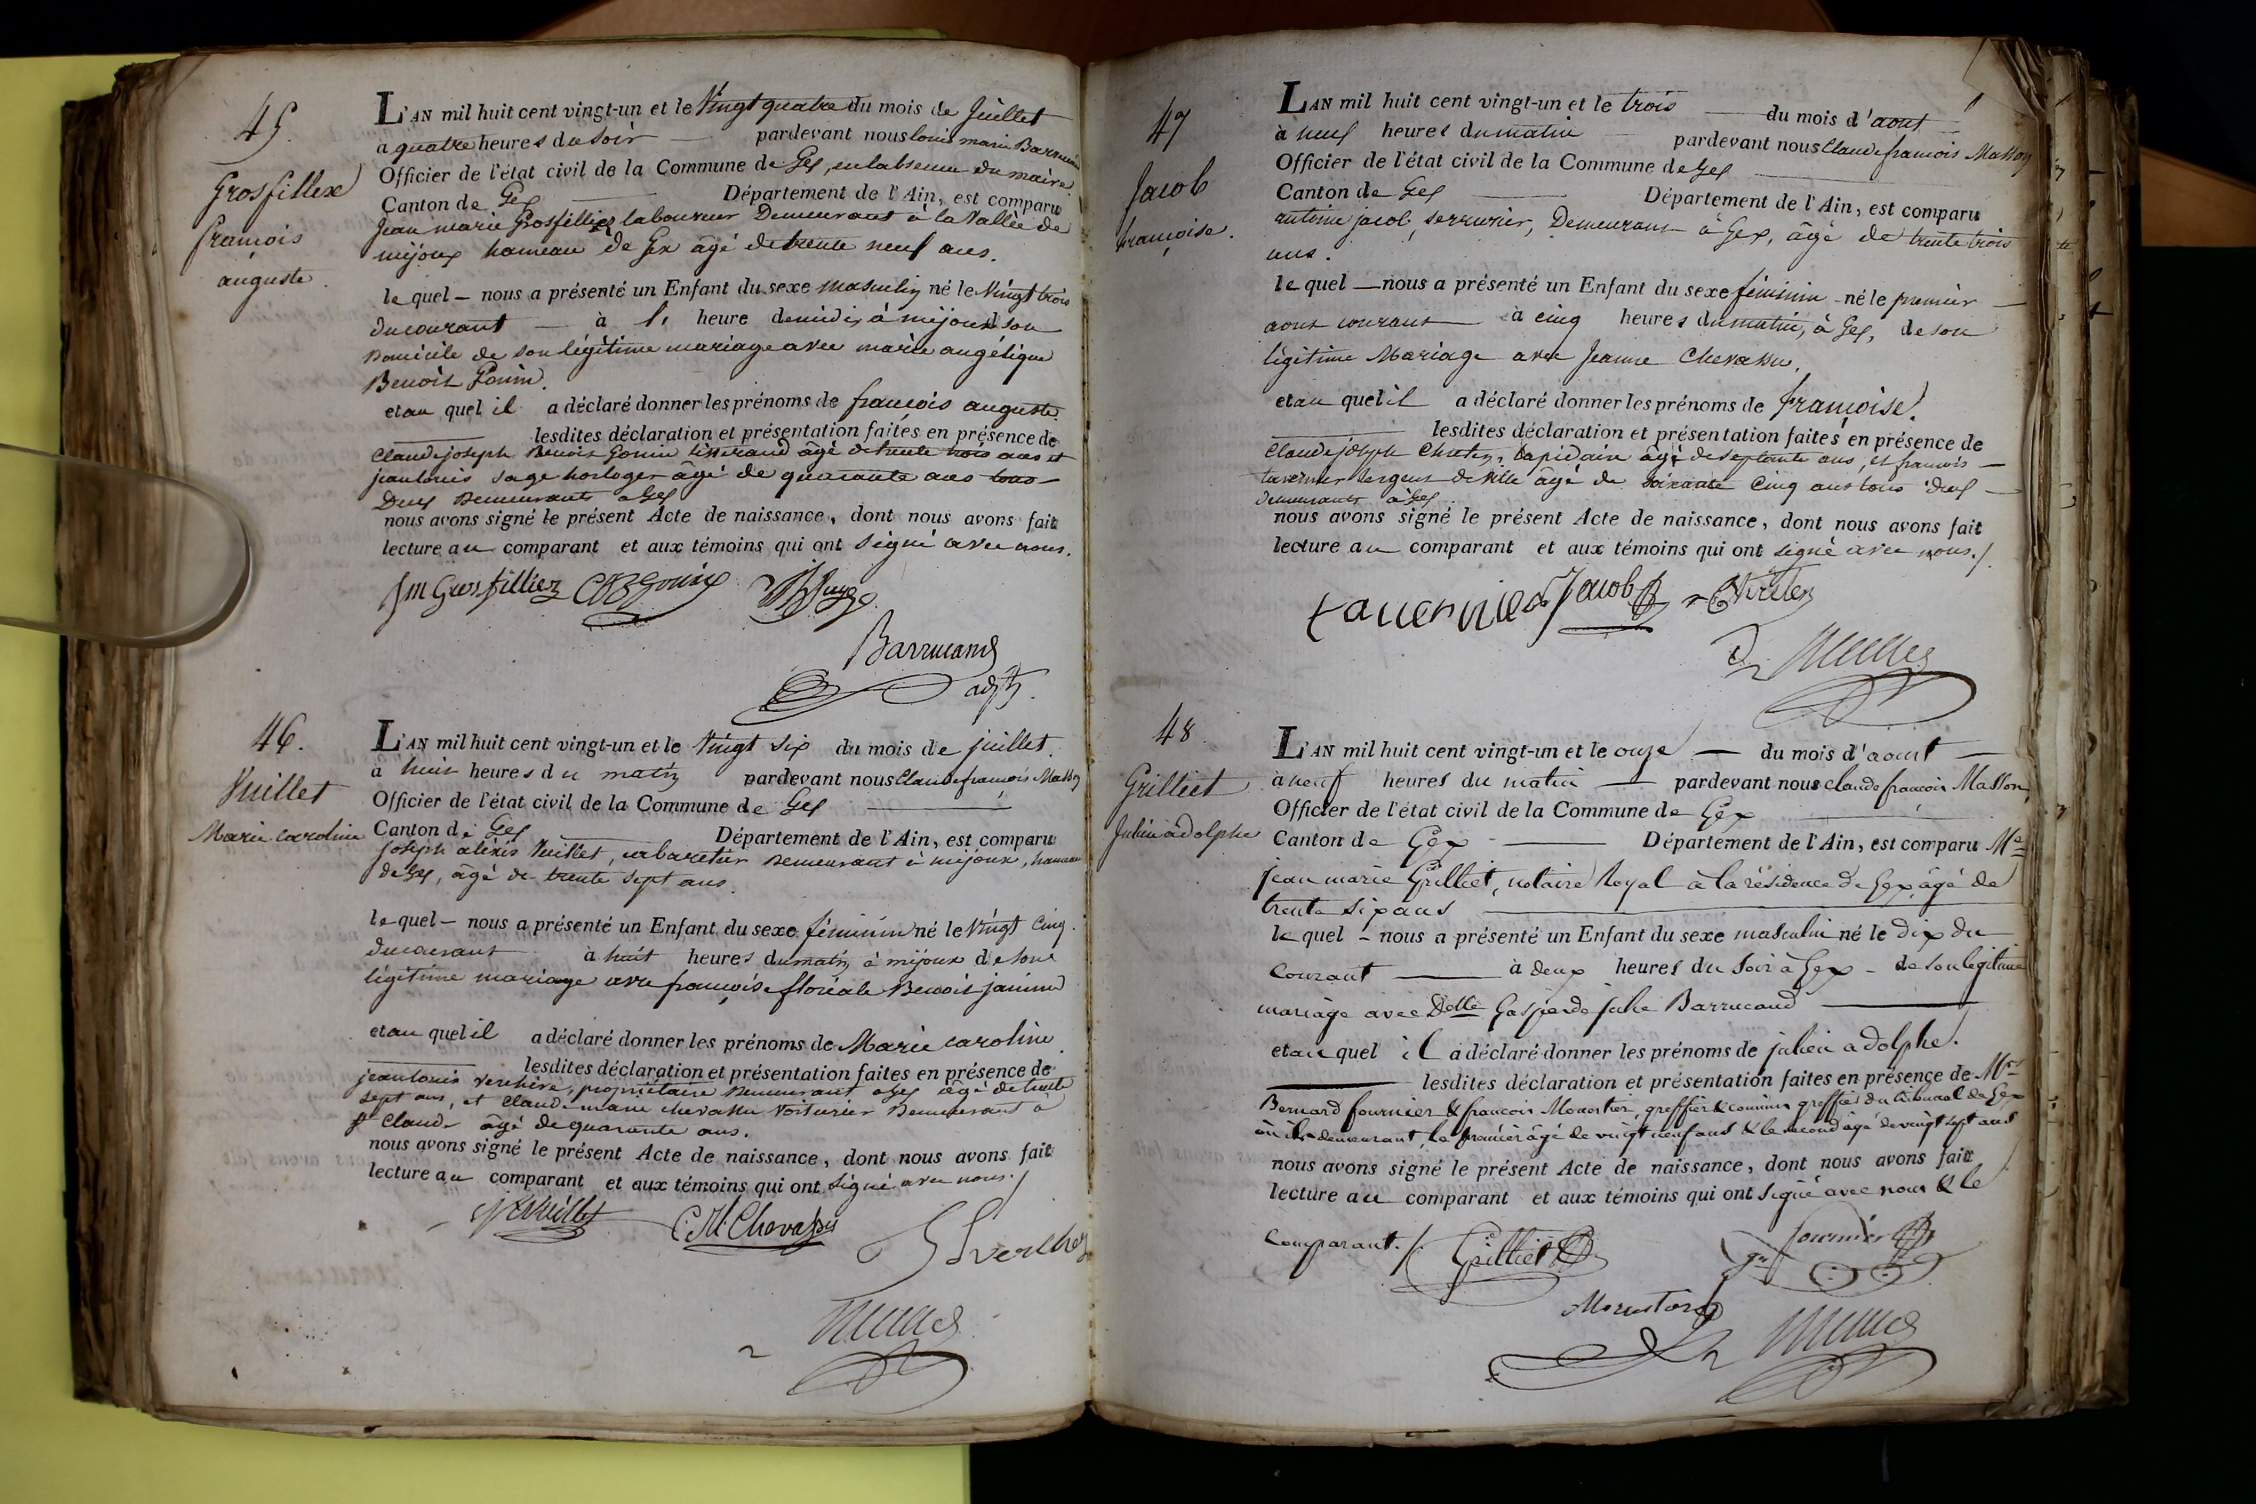 45.
Grosfillex
françois
auguste.
L'AN mil huit cent vingt-un et le Vingt quatre du mois de Juillet
a quatre heures du soir pardevant nous louis marie Barrucand
Officier de l'état civil de la Commune de Gex, en labsence du maire.
Canton de Gex Département de l'Ain, est comparu
Jean marie Grosfilliez laboureur Demeurant à la Vallée de
mijoux hameau de Gex âgé de trente neuf ans.
lequel — nous a présenté un Enfant du sexe masculin né le Vingt trois
du courant — à heure de midi, à mijoux de son
Domicile de son légitime mariage avec marie angélique
Benoit Gonin.
et au quel il a déclaré donner les prénoms de françois auguste.
lesdites déclaration et présentation faites en présence de
Claude joseph Benoit Gonin tisserand âgé de trente trois ans et
jean louis sage horloger âgé de quarante ans tous
Deux Demeurants a Gex
nous avons signé le présent Acte de naissance, dont nous avons fait
lecture au comparant et aux témoins qui ont signé avec nous.
Jm Grosfilliez CJBGonin
Barrucand
adjt.
46.
Vuillet
Marie caroline
L'AN mil huit cent vingt-un et le Vingt six du mois de juillet.
à huit heures du matin pardevant nous Claude françois Masson
Officier de l'état civil de la Commune de Gex
Canton de Gex Département de l'Ain, est comparu
joseph aléxis Vuillet, cabaretier Demeurant à mijoux, hameau
de Gex, âgé de trente sept ans.
lequel — nous a présenté un Enfant du sexe féminin né le Vingt Cinq.
du courant à huit heures du matin, à mijoux de son
légitime mariage avec françoise floréale Benoit janin
et au quel il a déclaré donner les prénoms de Marie caroline
lesdites déclaration et présentation faites en présence de
jean louis Verchère, propriétaire Demeurant a Gex âgé de trente
sept ans, et Claude marie chevassu voiturier Demeurant à
St Claude âgé de quarante ans.
nous avons signé le présent Acte de naissance, dont nous avons fait
lecture au comparant et aux témoins qui ont signé avec nous./
Vuillet C.M. Chevassu
47
Jacob
françoise.
L'AN mil huit cent vingt-un et le trois — du mois d'aout
à neuf heures du matin pardevant nous Claude francois Masson
Officier de l'état civil de la Commune de Gex
Canton de Gex Département de l'Ain, est comparu
antoine jacob, serrurier, Demeurant à Gex, âgé de trente trois
ans.
lequel — nous a présenté un Enfant du sexe féminin né le premier —
aout courant à cinq heures du matin, à Gex, de son
légitime Mariage avec Jeanne Chevassu.
et au quel il a déclaré donner les prénoms de françoise.
lesdites déclaration et présentation faites en présence de
Claude joseph Chreten, Lapidaire âgé de septante ans, et francois —
tavernier sergent de ville âgé de soixante Cinq ans tous deux —
Demeurants à Gex.
nous avons signé le présent Acte de naissance, dont nous avons fait
lecture au comparant et aux témoins qui ont signé avec nous./
tavernier Jacob
48
Grilliet
Julien adolphe
L'AN mil huit cent vingt-un et le onze — du mois d'aout —
à neuf heures du matin — pardevant nous claude françois Masson,
Officier de l'état civil de la Commune de Gex
Canton de Gex — Département de l'Ain, est comparu Me
jean marie Grilliet, notaire Royal à la résidence de Gex, âgé de
trente six ans
lequel — nous a présenté un Enfant du sexe masculin né le dix du
courant — à deux heures du soir à Gex — de son légitime
mariage avec Delle Gasparde julie Barrucand —
et au quel il a déclaré donner les prénoms de julien adolphe.
— lesdites déclaration et présentation faites en présence de Mrs
Bernard fournier & françois Monortier, greffier & commis greffier du tribunal de Gex
où ils demeurant, le premier âgé de vingt neuf ans & le second âgé de vingt sept ans
nous avons signé le présent Acte de naissance, dont nous avons fait
lecture au comparant et aux témoins qui ont signé avec nous & le
comparant./.
Grilliet fournier